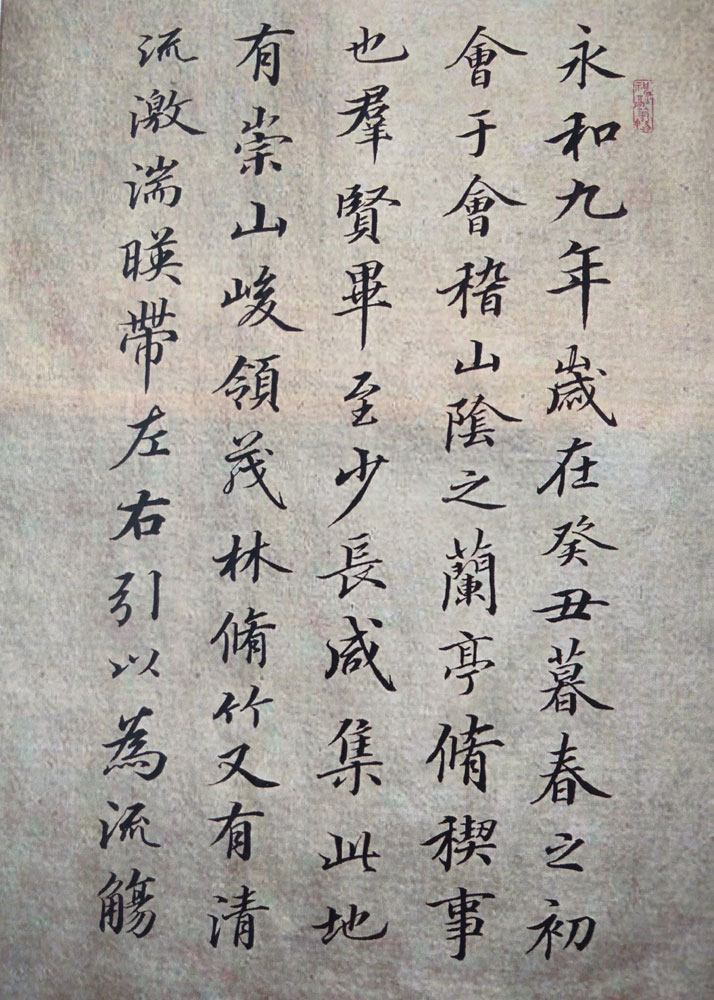 永和九年歲在癸丑暮春之初
會于會稽山陰之蘭亭脩稧事
也羣賢畢至少長咸集此地
有崇山峻領茂林脩竹又有清
流激湍暎帶左右引以為流觴